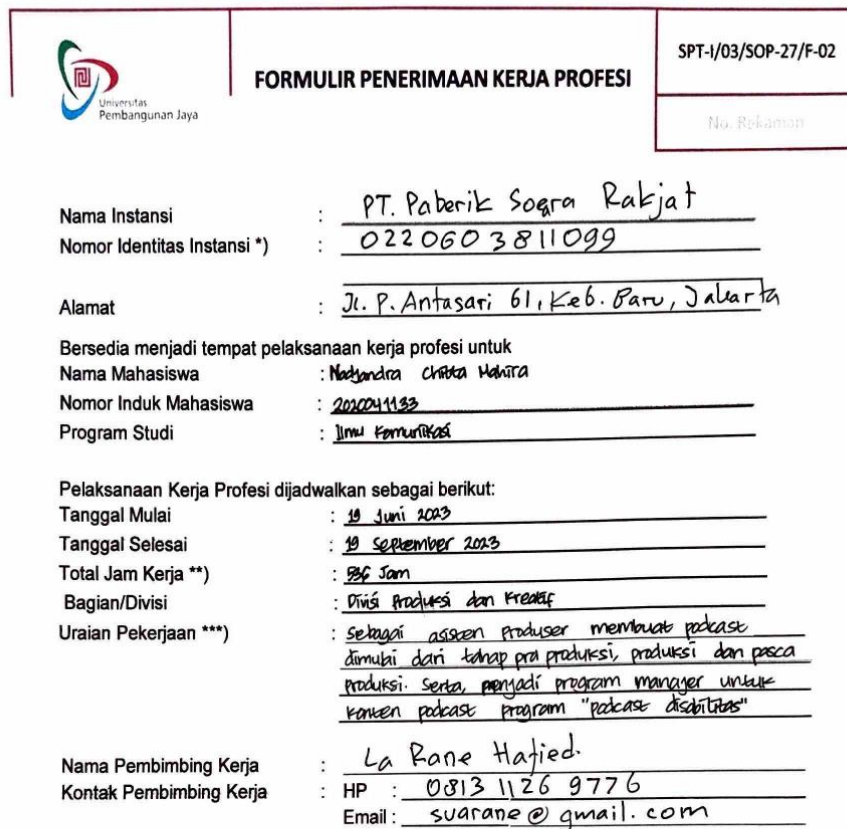 Universitas
Pembangunan Jaya
FORMULIR PENERIMAAN KERJA PROFESI
SPT-I/03/SOP-27/F-02
No. Rekaman
Nama Instansi : PT. Paberik Soera Rakjat
Nomor Identitas Instansi *) : 0220603811099
Alamat : Jl. P. Antasari 61, Keb. Baru, Jakarta
Bersedia menjadi tempat pelaksanaan kerja profesi untuk
Nama Mahasiswa : Mahira
Nomor Induk Mahasiswa : 2020041133
Program Studi : Ilmu Komunikasi
Pelaksanaan Kerja Profesi dijadwalkan sebagai berikut:
Tanggal Mulai : 19 Juni 2023
Tanggal Selesai : 19 September 2023
Total Jam Kerja **) : 536 Jam
Bagian/Divisi : Divisi Produksi dan Kreatif
Uraian Pekerjaan ***) : Sebagai asisten produser membuat podcast
dimulai dari tahap pra produksi, produksi dan pasca
produksi. Serta, menjadi program manajer untuk
konten podcast program "podcast disabilitas"
Nama Pembimbing Kerja : La Rane Hafied.
Kontak Pembimbing Kerja : HP : 0813 1126 9776
Email : suarane@gmail.com